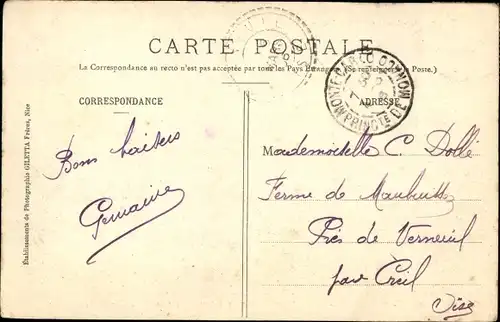 CARTE POSTALE
La Correspondance au recto n'est pas acceptée par tous les Pays Étrangers (Se renseigner à la Poste.)
CORRESPONDANCE
ADRESSE
MONTE-CARLO
PRINCTÉ DE MONACO
Établissements de Photographie GILETTA Frères, Nice
Bons baisers
Germaine
Mademoiselle C. Dollé
Ferme de Maubuisson
Près de Verneuil
par Creil
Oise